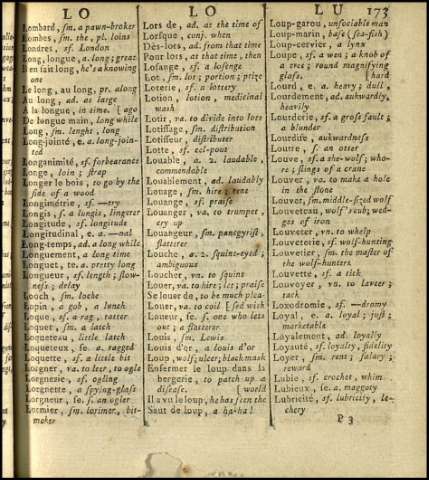 LO LO LU 173
Lombard, sm. a pawn-broker
Lombes, sm. the, pl. loins
Londres, sf. London
Long, longue, a. long; great
Il en fait long, he's a knowing
one
Le long, au long, pr. along
Au long, ad. at large
A la longue, in time. [ago
De longue main, long while
Long, sm. lenght, long
Long-jointé, e. a. long-join-
ted
Longanimité, sf. forbearance
Longe, loin; strap
Longer le bois, to go by the
side of a wood
Longimétrie, sf. —ry
Longis, s. a lungis, lingerer
Longitude, sf. longitude
Longitudinal, e. a. —nal
Long-temps, ad. a long while
Longuement, a long time
Longuet, te, a. pretty long
Longueur, sf. length; slow-
ness; delay
Looch, sm. loche
Lopin, a gob, a lunch
Loque, sf. a rag, tatter
Loquet, sm. a latch
Loqueteau, little latch
Loqueteux, se, a. ragged
Loquette, sf. a little bit
Lorgner, va. to leer, to ogle
Lorgnerie, sf. ogling
Lorgnette, a spying-glass
Lorgneur, se. s. an ogler
Lormier, sm. lorimer, bit-
maker
Lors de, ad. at the time of
Lorsque, conj. when
Dès-lors, ad. from that time
Pour lors, at that time, then
Losange, sf. a losenge
Lot, sm. lot; portion; prize
Loterie, sf. a lottery
Lotion, lotion, medicinal
wash
Lotir, va. to divide into lots
Lotissage, sm. distribution
Lotisseur, distributer
Lotte, sf. eel-pout
Louable, a. 2. laudable,
commendable
Louablement, ad. laudably
Louage, sm. hire; rent
Louange, sf. praise
Louanger, va. to trumpet,
cry up
Louangeur, sm. panegyrist,
flatterer
Louche, a. 2. squint-eyed;
ambiguous
Loucher, va. to squint
Louer, va. to hire; let; praise
Se louer de, to be much plea-
Louer, va. to coil [sed with
Loueur, se. s. one who lets
out; a flatterer
Louis, sm. Lewis
Louis d'or, a louis d'or
Loup, wolf; ulcer; black mask
Enfermer le loup dans la
bergerie, to patch up a
disease. [world
Il a vu le loup, he has seen the
Saut de loup, a ha-ha!
Loup-garou, unsociable man
Loup-marin, base (sea-fish)
Loup-cervier, a lynx
Loupe, sf. a wen; a knob of
a tree; round magnifying
glass. [hard
Lourd, e. a. heavy; dull;
Lourdement, ad. aukwardly,
heavily
Lourderie, sf. a gross fault;
a blunder
Lourdise, aukwardness
Loutre, sf. an otter
Louve, sf. a she-wolf; who-
re; slings of a crane
Louver, va. to make a hole
in the stone
Louvet, sm. middle-sized wolf
Louveteau, wolf's cub; wed-
ges of iron
Louveter, vn. to whelp
Louveterie, sf. wolf-hunting
Louvetier, sm. the master of
the wolf-hunters
Louvette, sf. a tick
Louvoyer, va. to laveer;
tack
Loxodromie, sf. —dromy
Loyal, e. a. loyal; just;
marketable
Loyalement, ad. loyally
Loyauté, sf. loyalty, fidelity
Loyer, sm. rent; salary;
reward
Lubie, sf. crochet, whim
Lubieux, se, a. maggoty
Lubricité, sf. lubricity, le-
chery
P 3